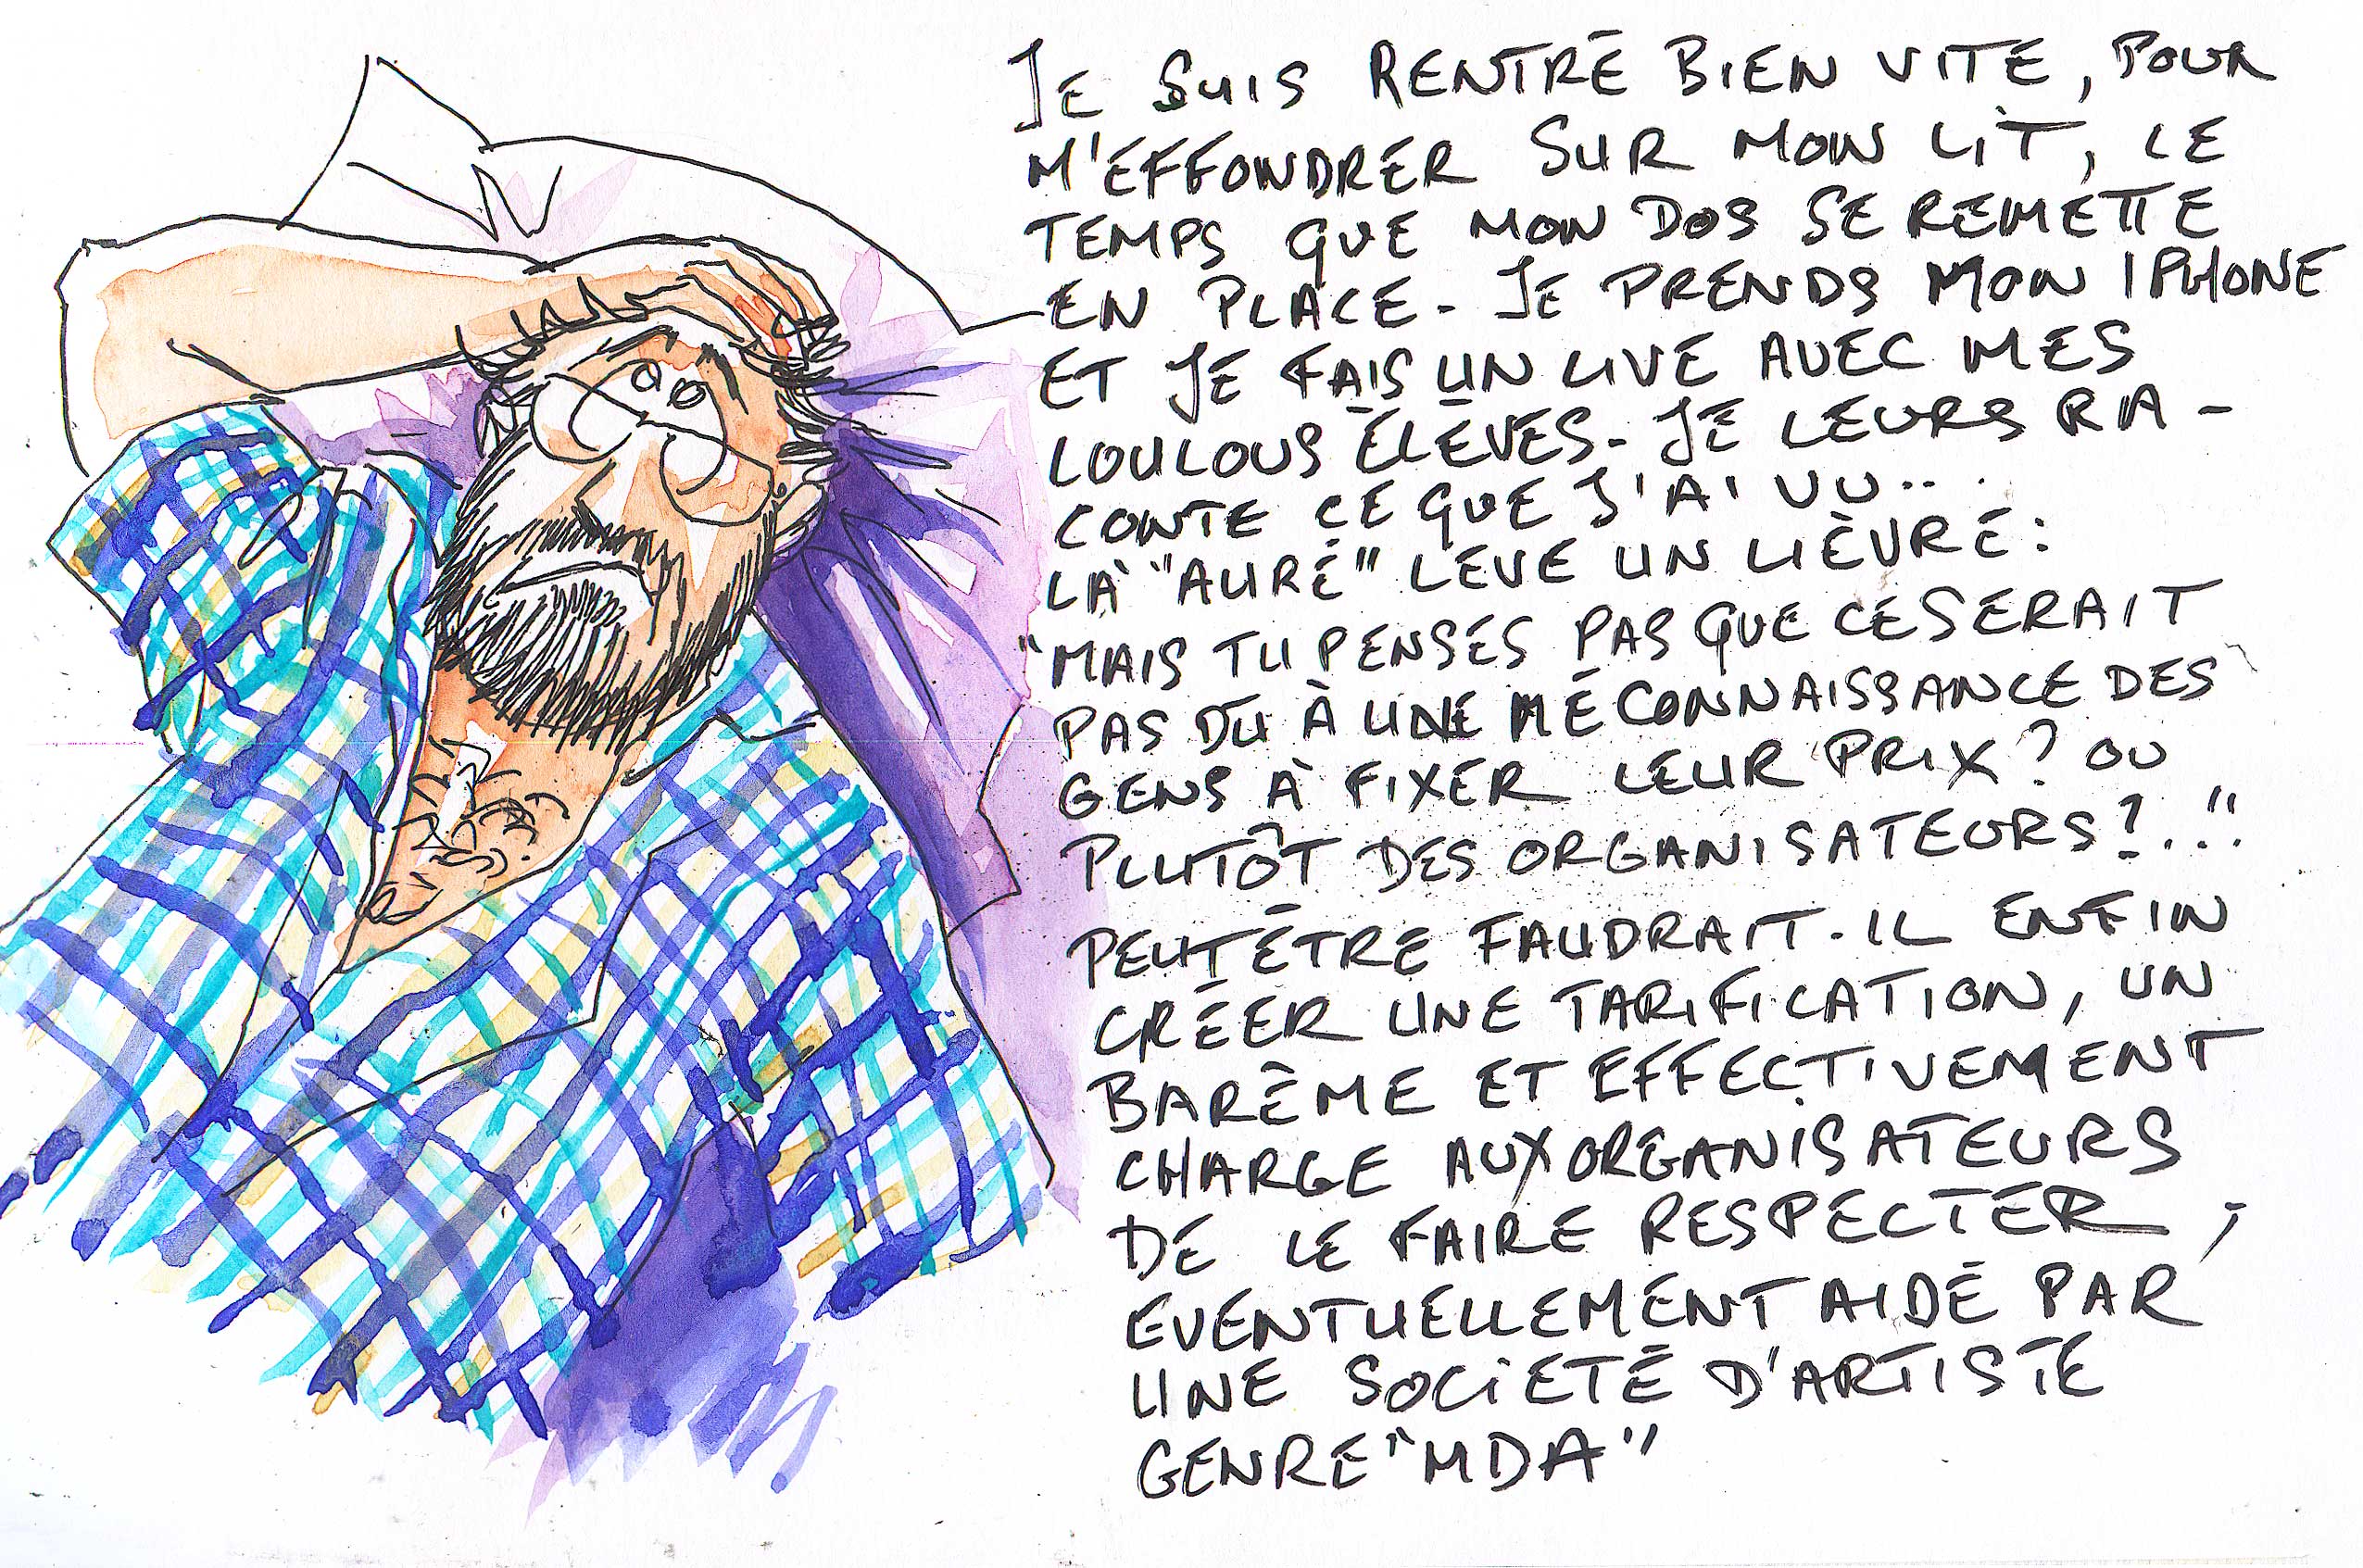 JE SUIS RENTRÉ BIEN VITE, POUR
M'EFFONDRER SUR MON LIT, LE
TEMPS QUE MON DOS SE REMETTE
EN PLACE. JE PRENDS MON IPHONE
ET JE FAIS UN LIVE AVEC MES
LOULOUS ÉLÈVES. JE LEURS RA-
CONTE CE QUE J'AI VU...
LÀ "AURÉ" LEVE UN LIÈVRE :
"MAIS TU PENSES PAS QUE CE SERAIT
PAS DÛ À UNE MÉCONNAISSANCE DES
GENS À FIXER LEUR PRIX ? OU
PLUTÔT DES ORGANISATEURS ?..."
PEUT ÊTRE FAUDRAIT-IL ENFIN
CRÉER UNE TARIFICATION, UN
BARÊME ET EFFECTIVEMENT
CHARGE AUX ORGANISATEURS
DE LE FAIRE RESPECTER,
EVENTUELLEMENT AIDÉ PAR
UNE SOCIÉTÉ D'ARTISTE
GENRE "MDA"